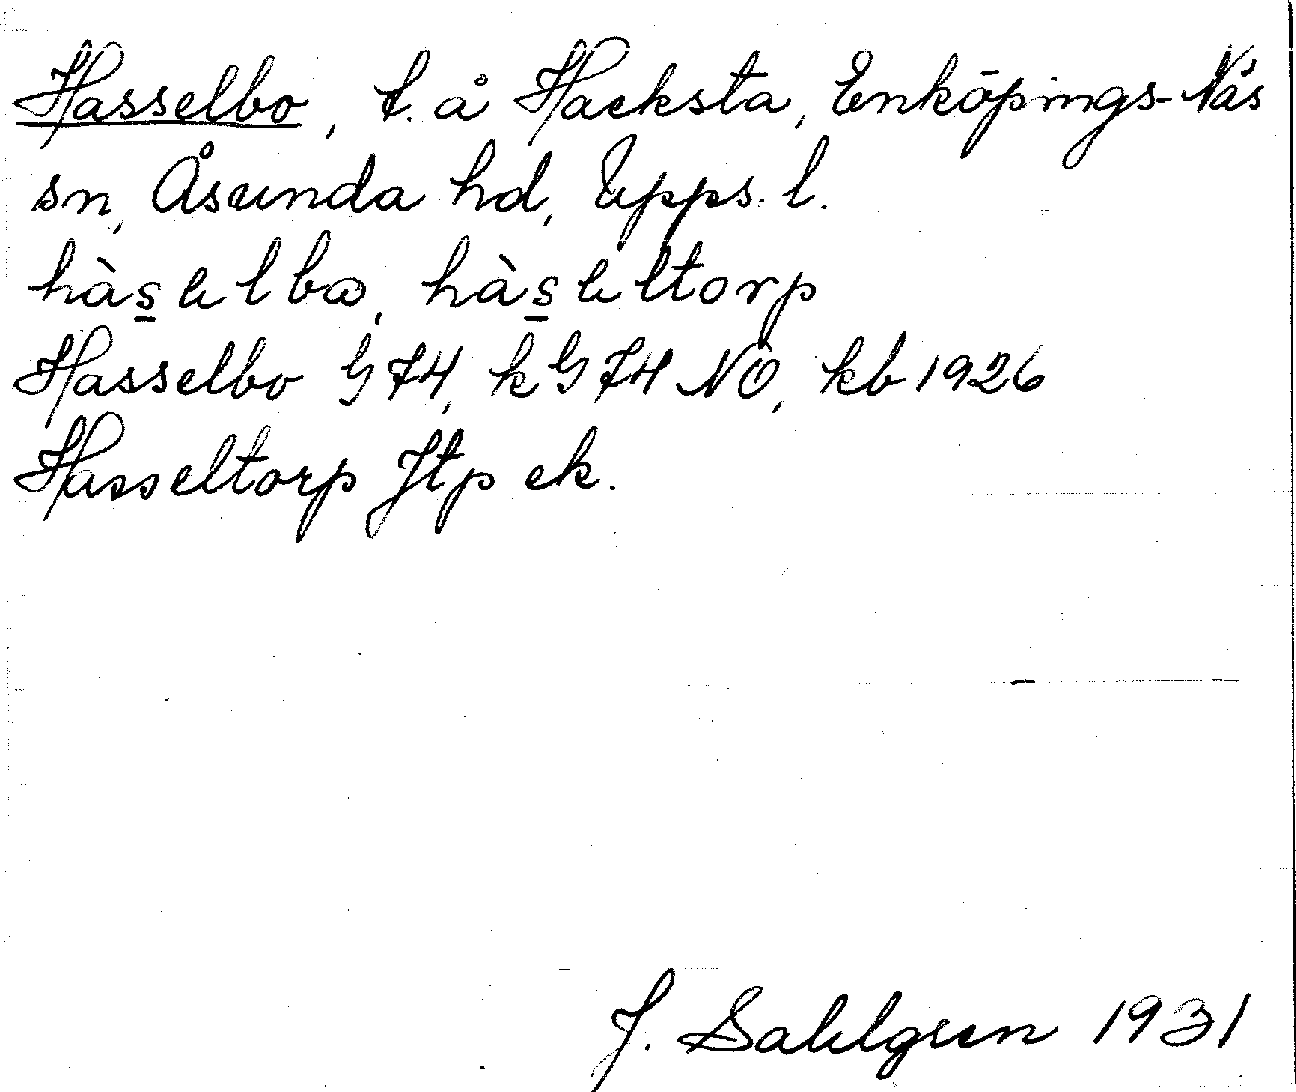 Hasselbo, t. å Hacksta, Enköpings-Näs
sn, Åsunda hd, Upps. l.
hàselbω, hàseltorp
Hasselbo G 74, k G 74 NO, kb 1926
Hasseltorp Jtp ek.
J. Sahlgren 1931